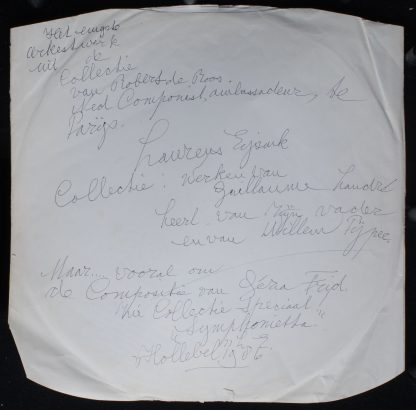 Het enigste
orkestwerk
uit de
Collectie
van Robert de Roos.
Ned Componist, ambassadeur, te
Parijs.
Laurens
Collectie: Werken van
Guillaume Landré
heel van mijn vader
en van Willem Pijper,
Maar... vooral om
de Compositie van Géza Frid.
Collectie Speciaal
"Symphonietta."